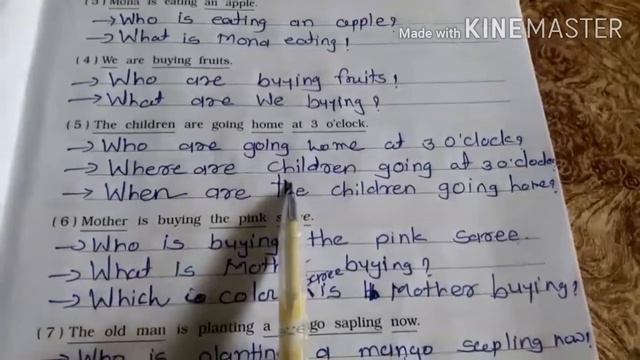 (3) Mona is eating an apple.
→ Who is eating an apple?
→ What is Mona eating!
Made with KINEMASTER
(4) We are buying fruits.
→ Who are buying fruits!
→ What are we buying?
(5) The children are going home at 3 o'clock.
→ Who are going home at 3 o'clock?
→ Where are children going at 3 o'clock
→ When are the children going home?
(6) Mother is buying the pink
→ Who is buying the pink saree
→ What is buying?
saree
→ Which is Mother buying?
(7) The old man is planting a go sapling now.
→ Who is a mango now?